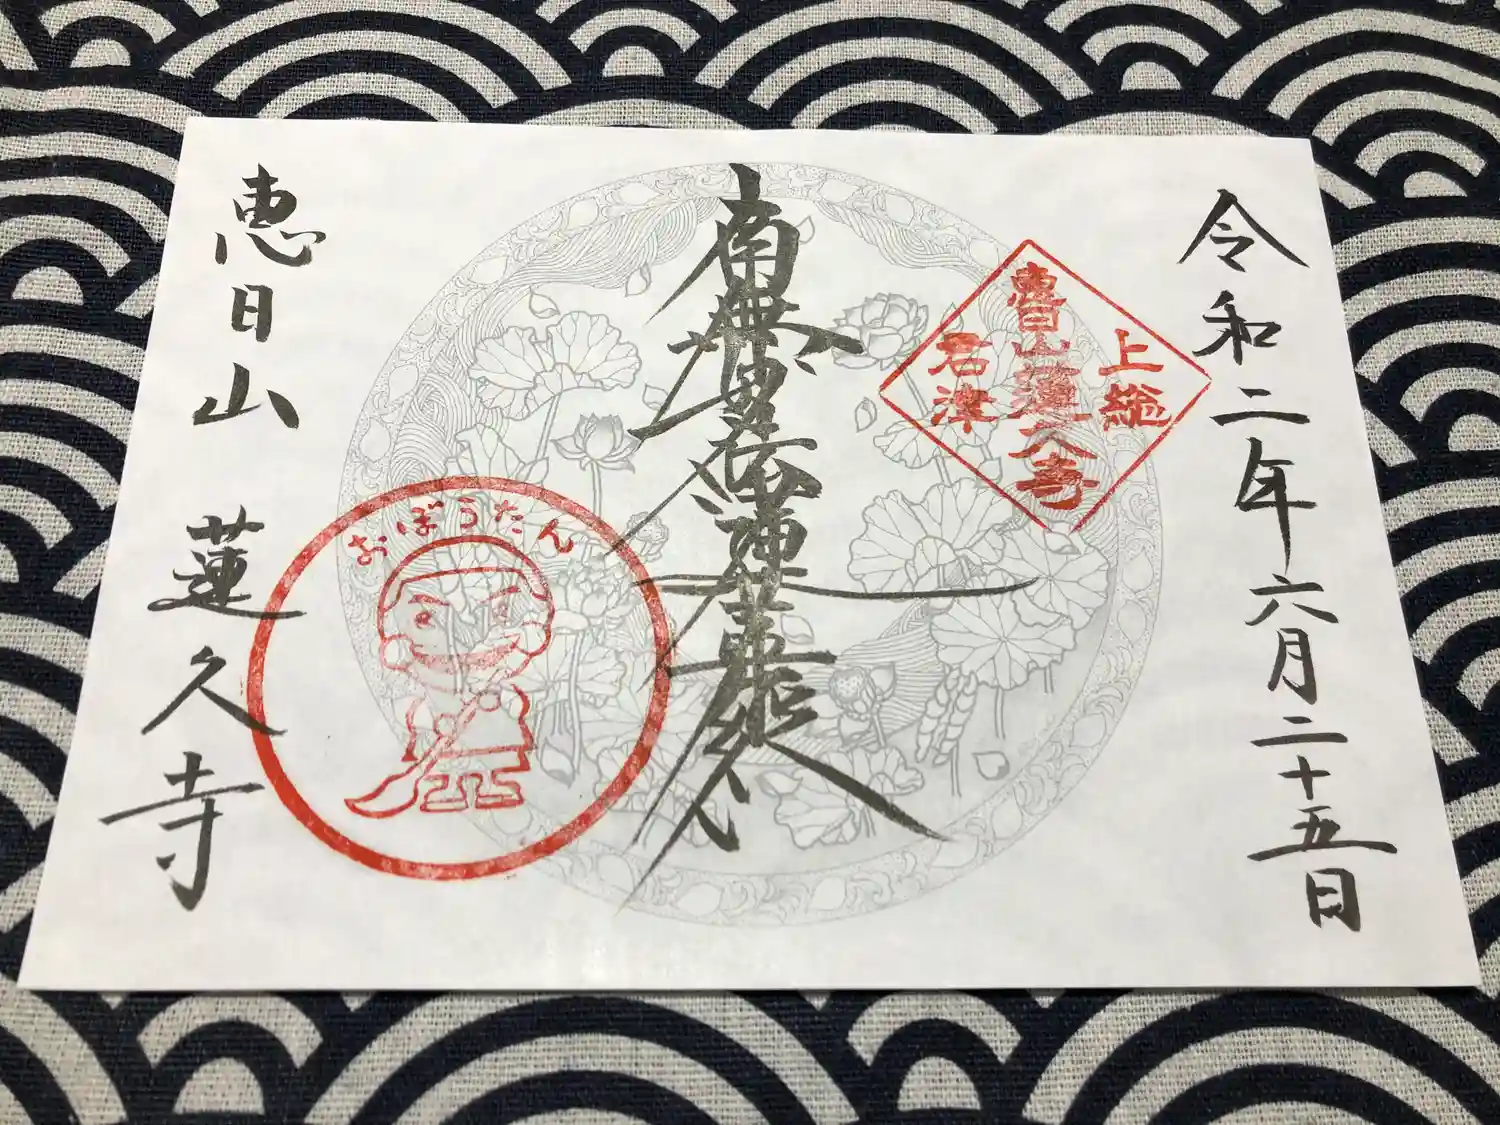 令和二年六月二十五日
上総
惠日山蓮久寺
君津
南無妙法蓮華経
おぼうたん
恵日山 蓮久寺